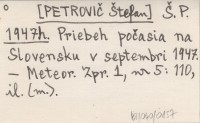 [PETROVIČ Štefan] Š.P.
1947h. Priebeh počasia na
Slovensku v septembri 1947.
— Meteor. Zpr. 1, nr 5: 110,
il. (m.).